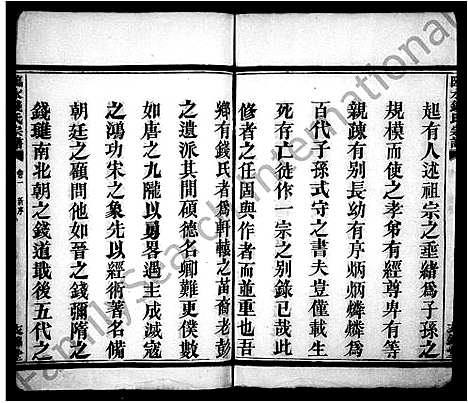 起有人述祖宗之垂緒為子孫之
規模而使之孝弟有經尊卑有等
親疎有别長幼有序炳炳燐燐為
百代子孫式守之書夫豈僅載生
死存亡徒作一宗之别錄已哉此
修者之任因與作者而並重也吾
鄉有錢氏者為軒轅之苗裔老彭
之遺派其間碩德名卿難更僕數
如唐之九隴以勇畧遇主成滅寇
之鴻功宋之象先以經術著名備
朝廷之顧問他如晉之錢彌隋之
錢璡南北朝之錢道戢後五代之
臨水錢氏宗譜
卷一
新序
臨水錢氏宗譜
FamilySearch International